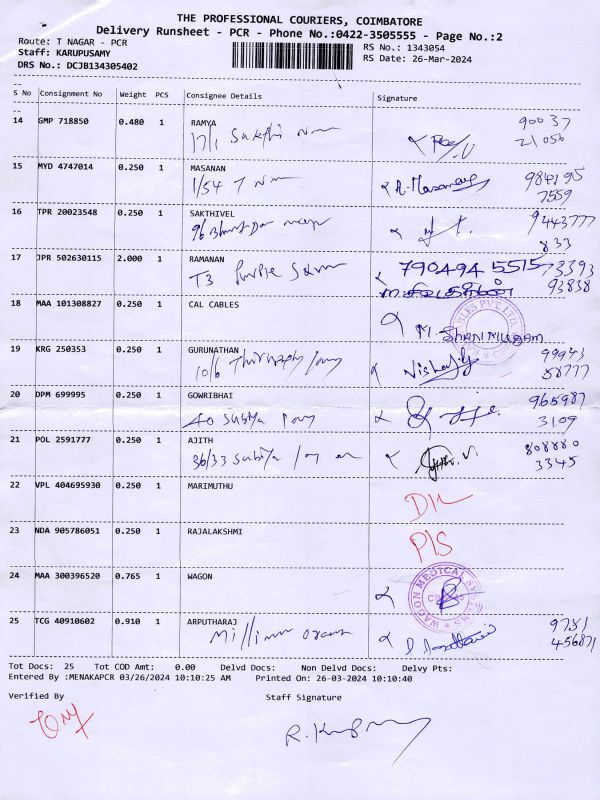 THE PROFESSIONAL COURIERS, COIMBATORE
Delivery Runsheet - PCR - Phone No.:0422-3505555 - Page No.:2
Route: T NAGAR - PCR
RS No.: 1343054
Staff: KARUPUSAMY
RS Date: 26-Mar-2024
DRS No.: DCJB134305402
S No Consignment No Weight PCS Consignee Details Signature
14 GMP 718850 0.480 1 RAMYA 90037
17/1 Sakthi 21056
15 MYD 4747014 0.250 1 MASANAN
1/54 T 984195
7559
16 TPR 20023548 0.250 1 SAKTHIVEL 9443777
96 833
17 JPR 502630115 2.000 1 RAMANAN 790494 5515 73393
T3 Purple 93838
18 MAA 101308827 0.250 1 CAL CABLES
M. SHANMUGAM
19 KRG 250353 0.250 1 GURUNATHAN 99943
10/6 58777
20 DPM 699995 0.250 1 GOWRIBHAI 965987
40 Subiya 3109
21 POL 2591777 0.250 1 AJITH 808880
36/33 Subiya 3345
22 VPL 404695930 0.250 1 MARIMUTHU
D/L
23 NDA 905786051 0.250 1 RAJALAKSHMI
P/S
24 MAA 300396520 0.765 1 WAGON
WAGON MEDICAL SYSTEMS
25 TCG 40910602 0.910 1 ARPUTHARAJ 9781
456871
Tot Docs: 25 Tot COD Amt: 0.00 Delvd Docs: Non Delvd Docs: Delvy Pts:
Entered By :MENAKAPCR 03/26/2024 10:10:25 AM Printed On: 26-03-2024 10:10:40
Verified By Staff Signature